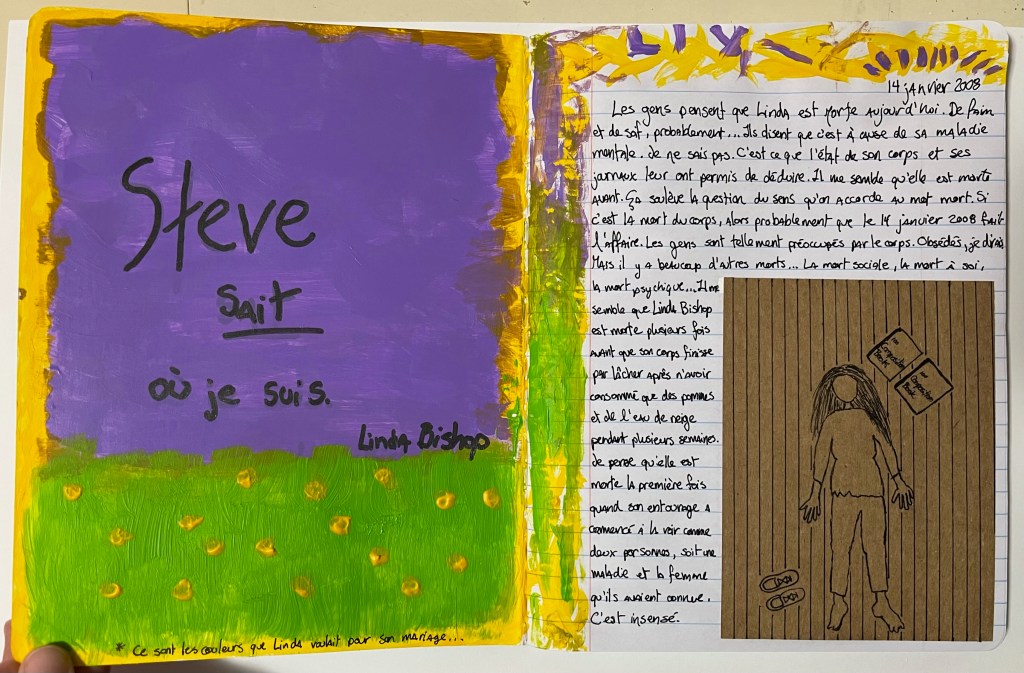 Steve
sait
où je suis.
Linda Bishop
* Ce sont les couleurs que Linda voulait pour son mariage...
14 janvier 2008
Les gens pensent que Linda est morte aujourd'hui. De faim
et de soif, probablement... Ils disent que c'est à cause de sa maladie
mentale. Je ne sais pas. C'est ce que l'état de son corps et ses
jarnaux leur ont permis de déduire. Il me semble qu'elle est morte
avant. Ça soulève la question du sens qu'on accorde au mot mort. Si
c'est la mort du corps, alors probablement que le 14 janvier 2008 fait
l'affaire. Les gens sont tellement préoccupés par le corps. Obsédés, je dirais.
Mais il y a beaucoup d'autres morts... La mort sociale, la mort à soi,
la mort psychique... Il me
semble que Linda Bishop
est morte plusieurs fois
avant que son corps finisse
par lâcher après n'avoir
consommé que des pommes
et de l'eau de neige
pendant plusieurs semaines.
Je pense qu'elle est
morte la première fois
quand son entourage a
commencé à la voir comme
deux personnes, soit une
maladie et la femme
qu'ils avaient connue.
C'est insensé.
Composition
Book
Composition
Book